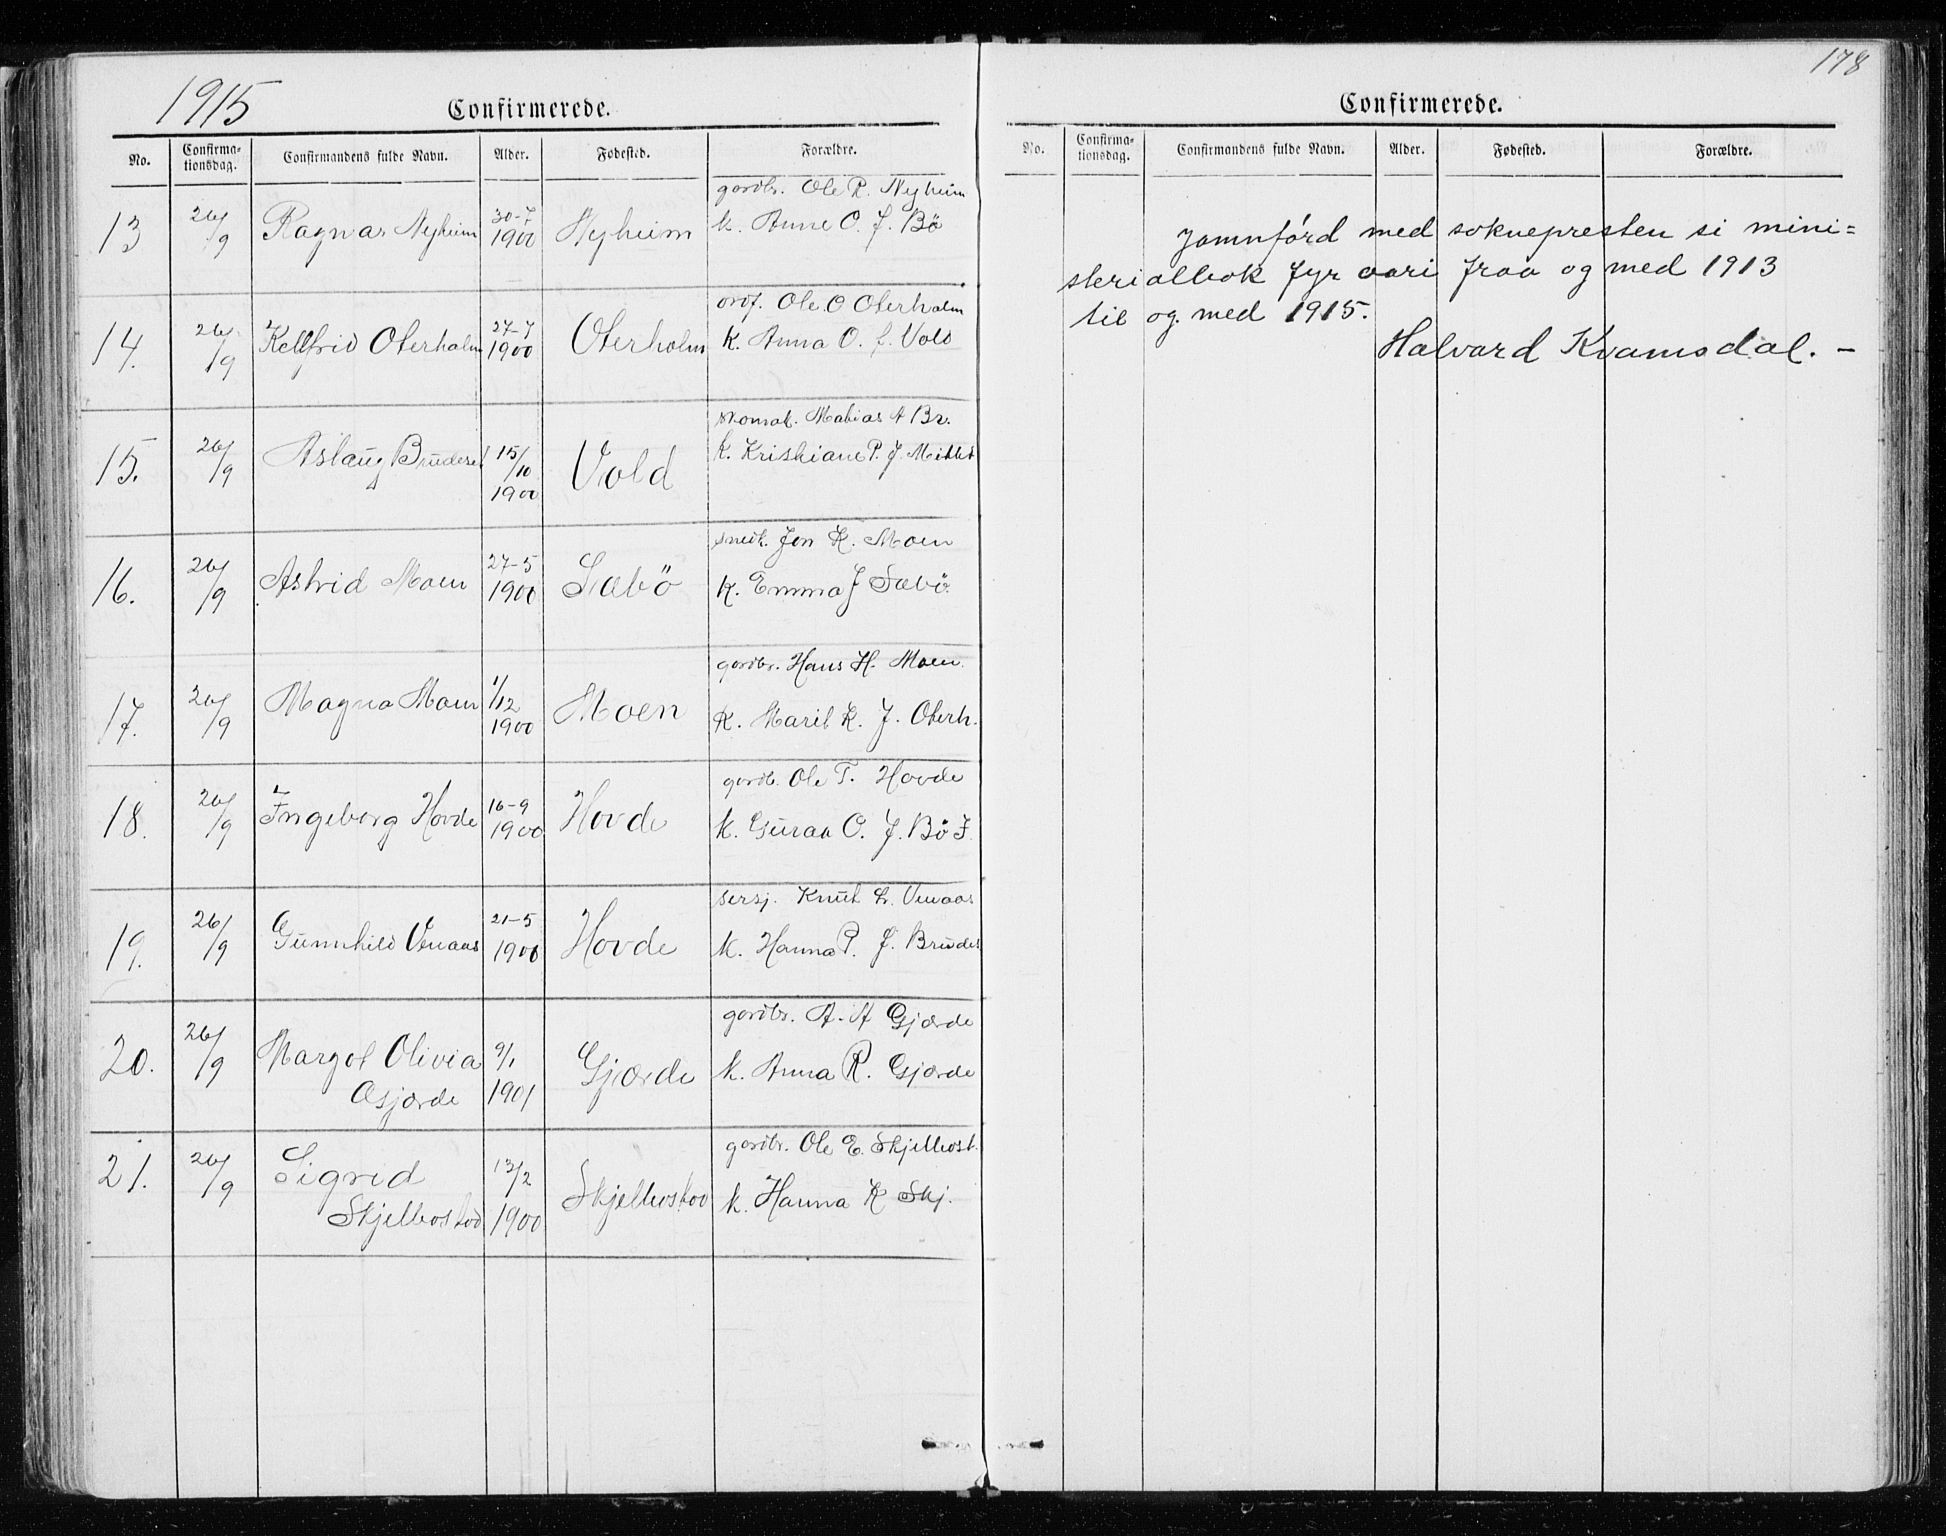 1915
Confirmerede.
No. Confirma-tionsdag. Confirmandens fulde Navn. Alder. Fødested. Forældre.
gardbr. Ole R. Nyheim
13 26/9 Ragnar Nyheim 30-7 1900 Nyheim k. Anne O. f. Bö
Ole O Oterholm
14. 26/9 Kellfrid Oterholm 27-7 1900 Oterholm k. Anna O. f. Vold
skomak. Matias A Br.
15. 26/9 Aslaug Brudeset 15/10 1900 Vold k. Kristiane P. f. Mittet
snedk. Jon K. Moen
16. 26/9 Astrid Moen 27-5 1900 Sæbö k. Emma f Sæbö
gardbr. Hans H. Moen.
17. 26/9 Magna Moen 1/12 1900 Moen k. Marit K. f. Oterh.
gardb. Ole T. Hovde
18. 26/9 Ingeborg Hovde 16-9 1900 Hovde k. Guraa O. f. Bö I.
sersj. Knut L. Venaas
19. 26/9 Gunnhild Venaas 21-5 1900 Hovde k. Hanna P. f. Brudes
gardbr. A. A Gjærde
20. 26/9 Margot Olivia Gjærde 9/1 1901 Gjærde k. Anna R. Gjærde
gardbr. Ole E. Skjelbost.
21. 26/9 Sigrid Skjelbostad 13/2 1900 Skjelbostad k. Hanna K Skj.
178
Confirmerede.
No. Confirma-tionsdag. Confirmandens fulde Navn. Alder. Fødested. Forældre.
Jamnförd med soknepresten si mini=
sterialbok fyr aari fraa og med 1913
til og med 1915.
Halvard Kvamsdal. –